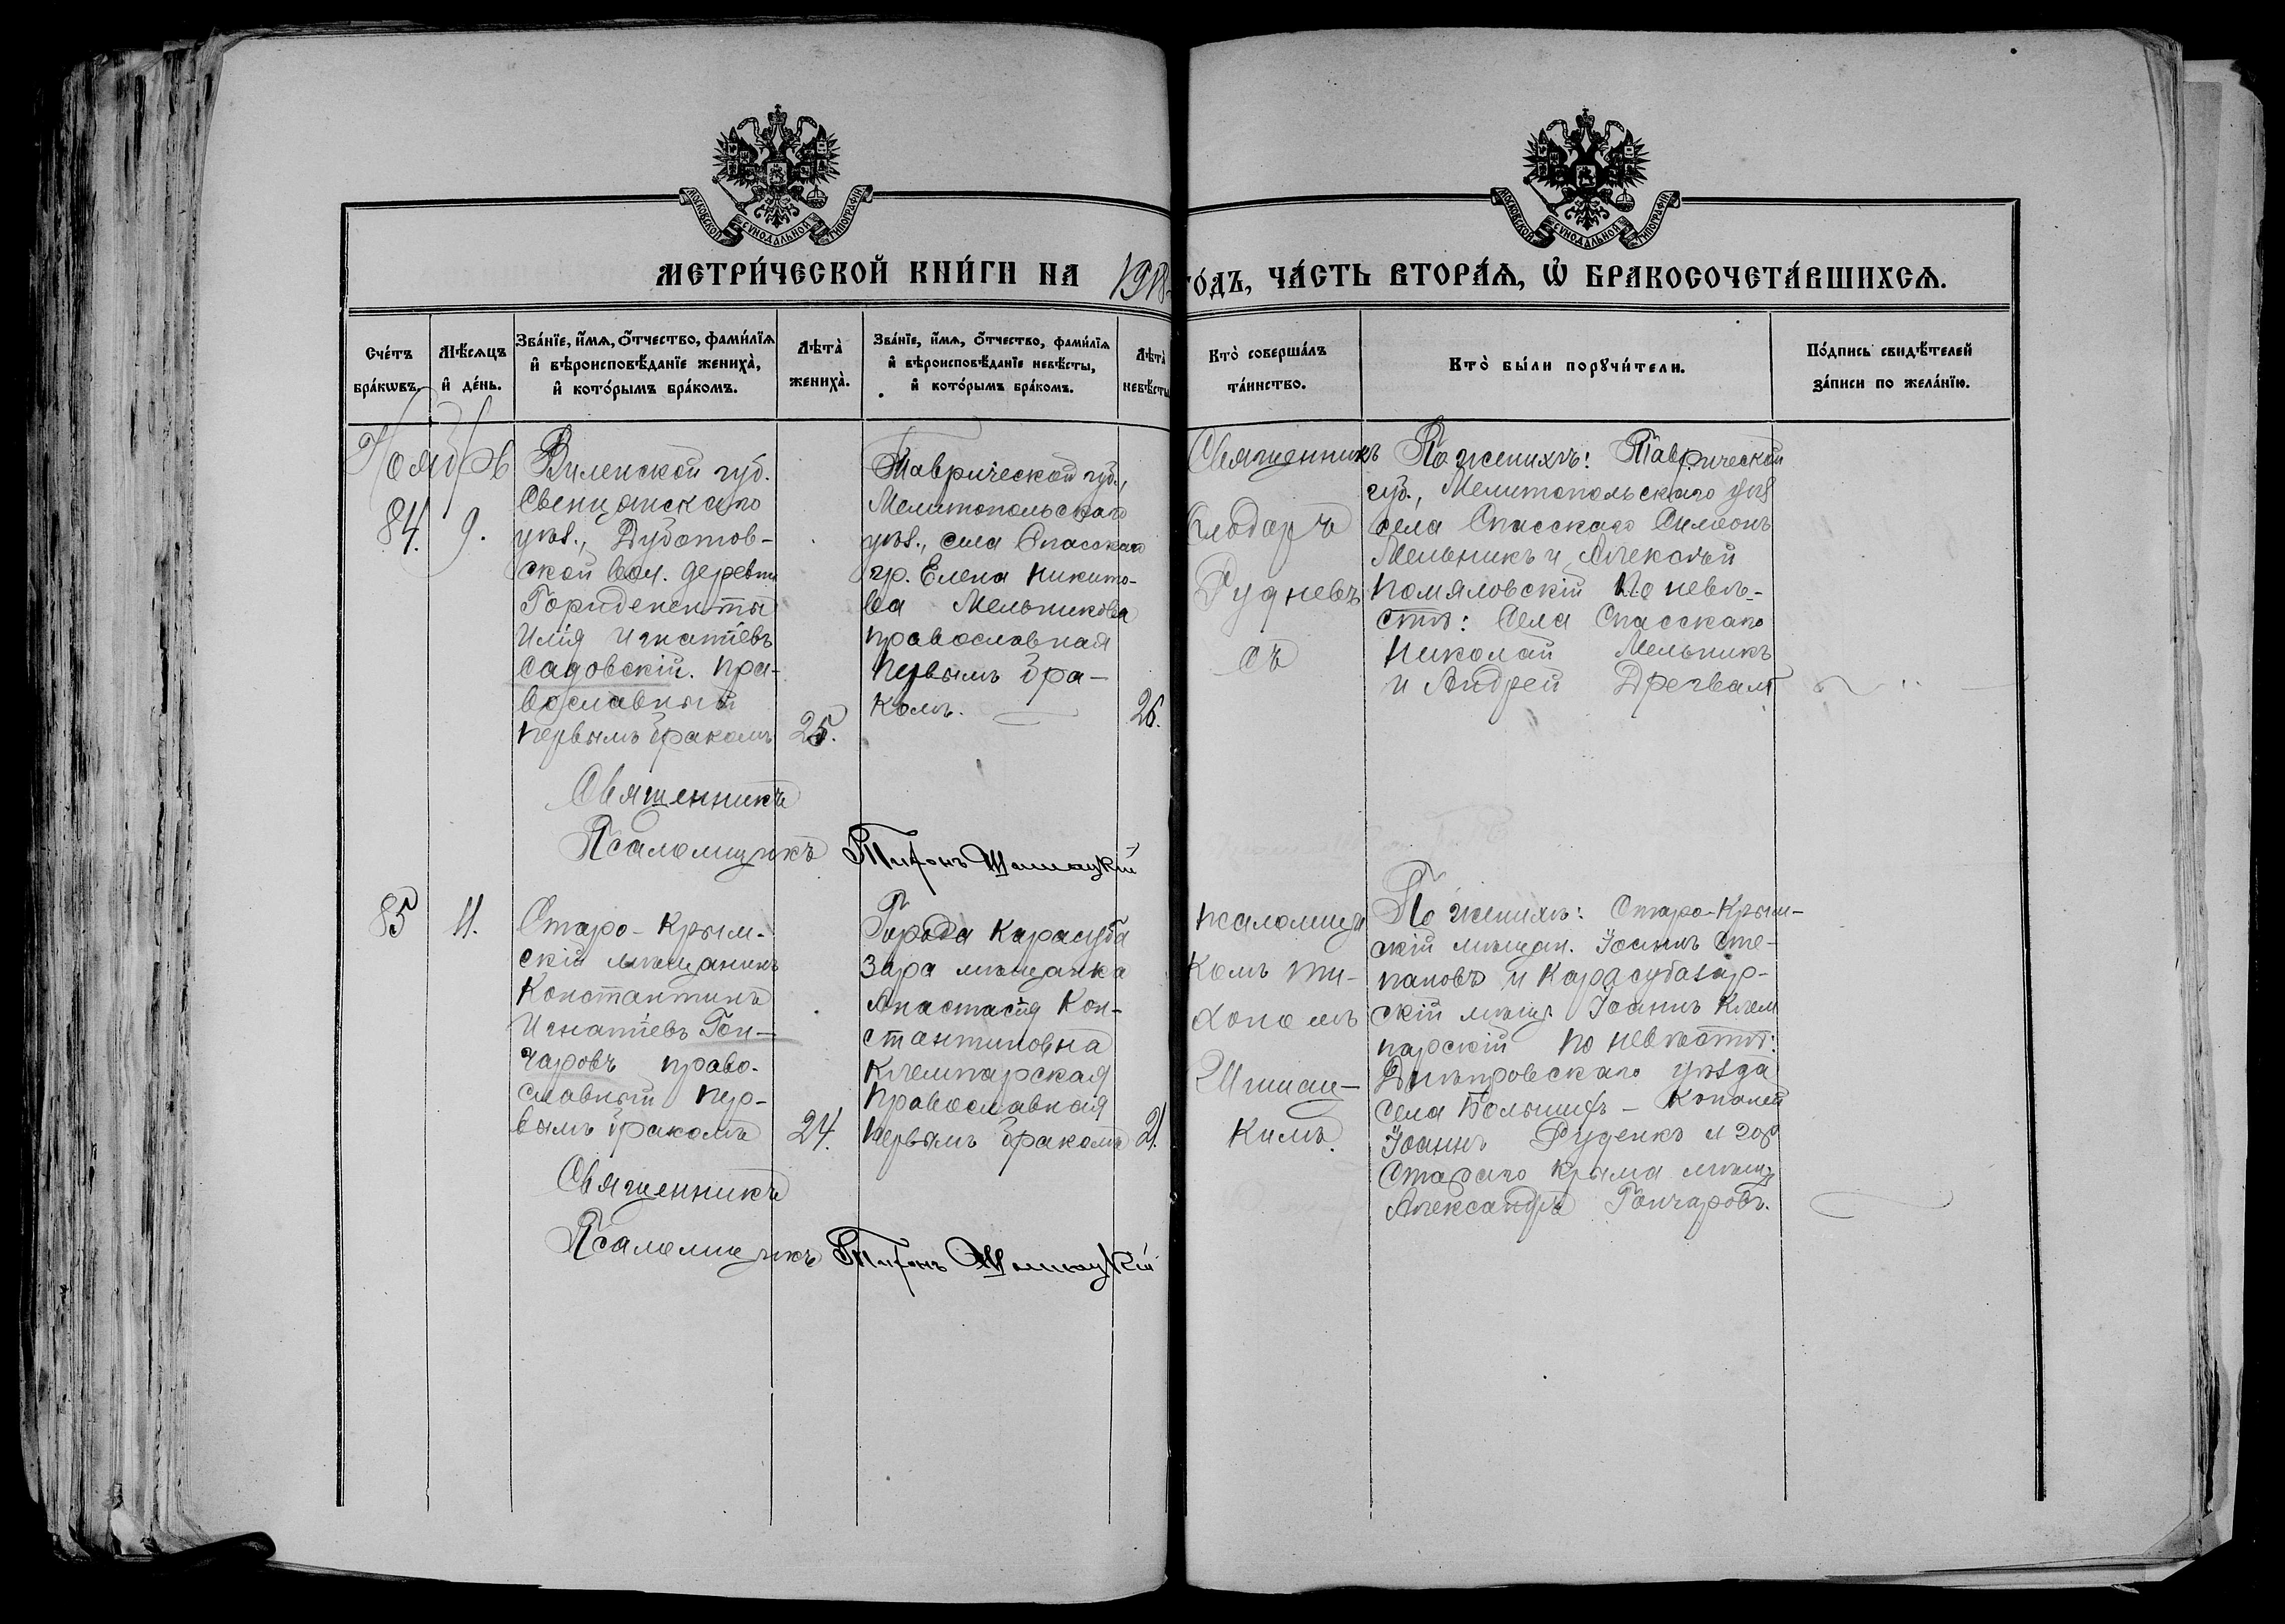 МОСКОВСКОЙ СѴНОДАЛЬНОЙ ТИПОГРАФІИ
МОСКОВСКОЙ СѴНОДАЛЬНОЙ ТИПОГРАФІИ
МЕТРИ́ЧЕСКОЙ КНИ́ГИ НА 1918 ГО́ДЪ, ЧА́СТЬ ВТОРА́Ѧ, Ѡ҆ БРАКОСОЧЕТА́ВШИХСѦ.
Сче́тъ
бра́кѡвъ.
Мѣ́сѧцъ
и҆ де́нь.
Зва́нїе, и҆́мѧ, ѻ҆́тчество, фами́лїѧ
и҆ вѣроисповѣ́данїе жениха̀,
и҆ кото́рымъ бра́комъ.
Лѣта̀
жениха̀.
Зва́нїе, и҆́мѧ, ѻ҆́тчество, фами́лїѧ
и҆ вѣроисповѣ́данїе невѣ́сты,
и҆ кото́рымъ бра́комъ.
Лѣта̀
невѣ́сты
Кто̀ соверша́лъ
та́инство.
Кто̀ бы́ли порꙋчи́тели.
По́дпись свидѣ́телей
за́писи по жела́нїю.
Ноябрь
84.
9.
Виленской губ.
Свенцянскаго
уѣз., Дубатов-
ской вол. деревни
Илія Игнатіевъ
Садовскій. Пра-
вославный
первымъ бракомъ
25.
Таврической губ.,
Мелитопольскаго
уѣз., села Спасскаго
гр. Елена Никито-
ва Мельникова
православная
первымъ бра-
комъ.
26.
Священникъ
Слободчъ
Рудневъ
съ
По женихѣ: Таврической
губ., Мелитопольскаго уѣз
села Спасскаго Симеонъ
Мельникъ и Алексѣй
Помяловскій По невѣ-
стѣ: Села Спасскаго
Николай Мельникъ
и Андрей
Священникъ
Псаломщикъ Тихонъ Шишацкій
85
11.
Старо-Крым-
скій мѣщанинъ
Константинъ
Игнатіевъ Гон-
чаровъ право-
славный пер-
вымъ бракомъ
24.
Города Карасуба
зара мѣщанка
Анастасія Кон-
стантиновна
Клемпарская
Православная
первымъ бракомъ
21
псаломщи
комъ Ти-
хономъ
Шишац-
кимъ.
По женихѣ: Старо-Крым-
скій мѣщан. Іоаннъ Сте-
пановъ и Карасубазар-
скій мѣщ. Іоаннъ Клем
парскій по невѣстѣ:
Днѣпровскаго уѣзда
села Большихъ-Копаней
Іоаннъ Руденко и гор
Стараго Крыма мѣщ.
Александръ Гончаровъ.
Священникъ
Псаломщикъ Тихонъ Шишацкій